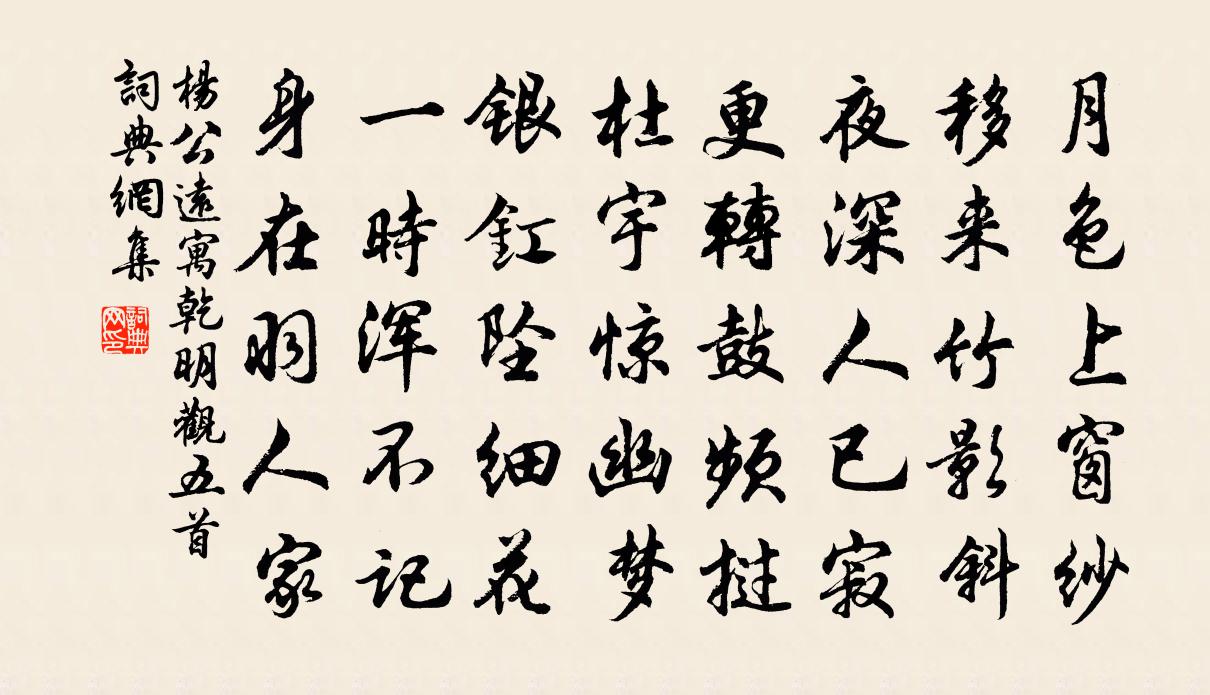 月色上窗纱
移来竹影斜
夜深人已寂
更轉鼓频挝
杜宇惊幽梦
銀釭坠细花
一時浑不记
身在羽人家
楊公遠寓乾明觀五首
詞典網集
詞典网印